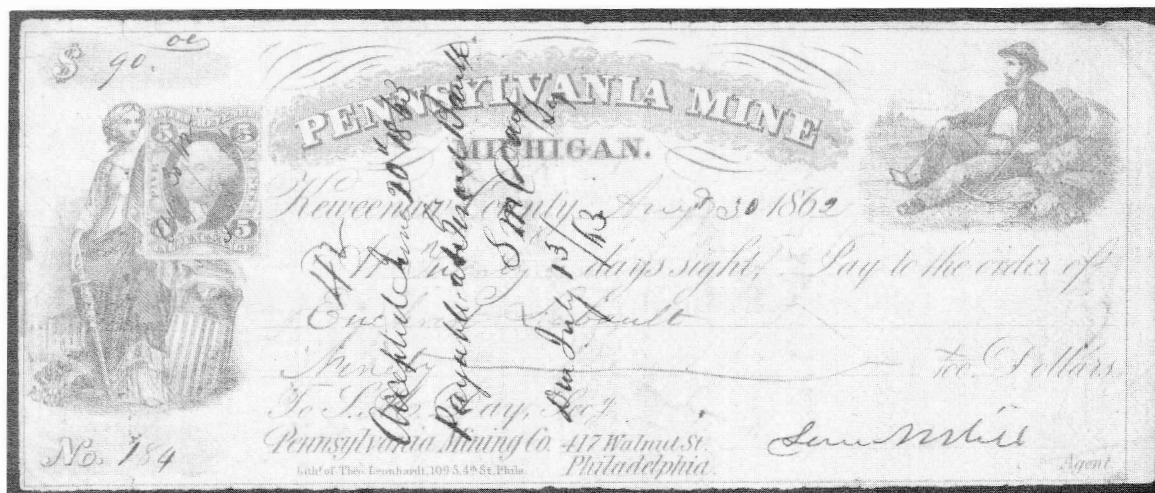 $ 90.00
PENNSYLVANIA MINE
MICHIGAN.
Keweenaw County, Augt 30 1862
At Twenty days sight, Pay to the order of
Ninety 100 Dollars.
To S. M. Day, Secy.
Pennsylvania Mining Co. 417 Walnut St.
Philadelphia.
Lith! of Theo. Leonhardt, 109 S. 4th St. Phila.
No. 184
Agent
5 5
CENTS
5
Accepted June 20th 1863
Payable at Bank
S M Day Secy
Due July 13/63